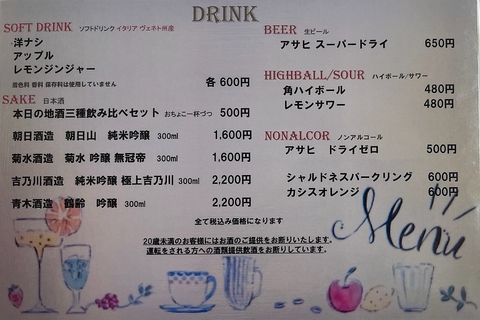 DRINK
SOFT DRINK ソフトドリンク イタリア ヴェネト州産
・洋ナシ
アップル
レモンジンジャー
各 600円
着色料 香料 保存料は使用していません
SAKE 日本酒
本日の地酒三種飲み比べセット おちょこ一杯づつ 500円
朝日酒造 朝日山 純米吟醸 300ml 1,600円
菊水酒造 菊水 吟醸 無冠帝 300ml 1,600円
吉乃川酒造 純米吟醸 極上吉乃川 300ml 2,200円
青木酒造 鶴齢 吟醸 300ml 2,200円
BEER 生ビール
アサヒ スーパードライ 650円
HIGHBALL/SOUR ハイボール/サワー
角ハイボール 480円
レモンサワー 480円
NONALCOR ノンアルコール
アサヒ ドライゼロ 500円
シャルドネスパークリング 600円
カシスオレンジ 600円
全て税込み価格になります
20歳未満のお客様にはお酒のご提供をお断りいたします。
運転をされる方への酒類提供飲酒をお断りしています。
Menu